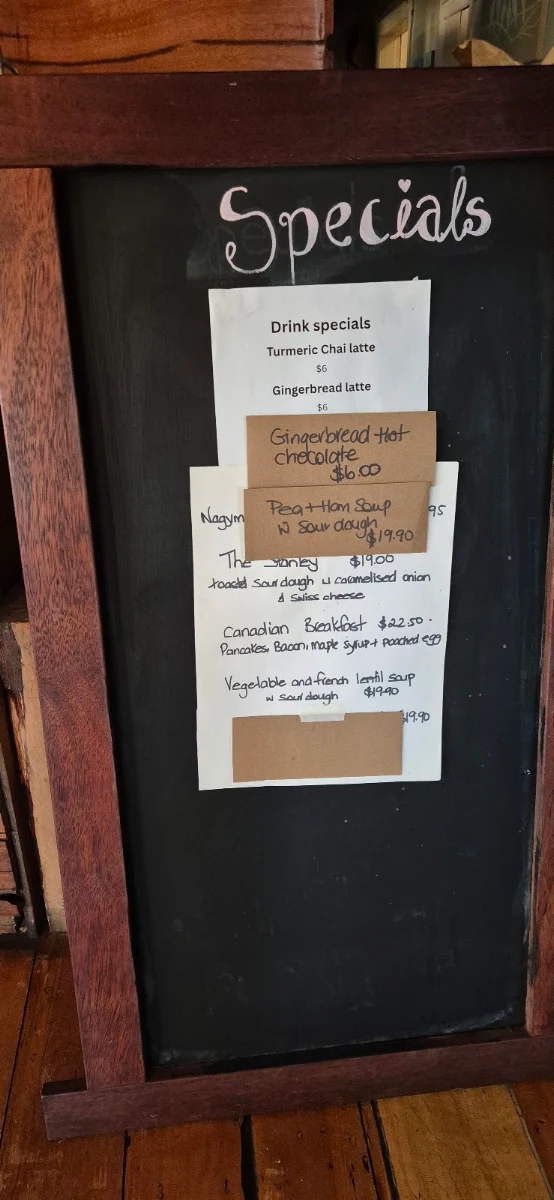 Specials
Drink specials
Turmeric Chai latte
$6
Gingerbread latte
$6
Gingerbread Hot
chocolate
$6.00
Pea + Ham Soup
W Sour dough
$19.90
Nagym
95
The Stanley $19.00
toasted Sourdough w caramelised onion
& Swiss cheese
Canadian Breakfast $22.50.
Pancakes, Bacon, maple syrup + poached egg
Vegetable and french lentil soup
w Sour dough $19.90
$19.90